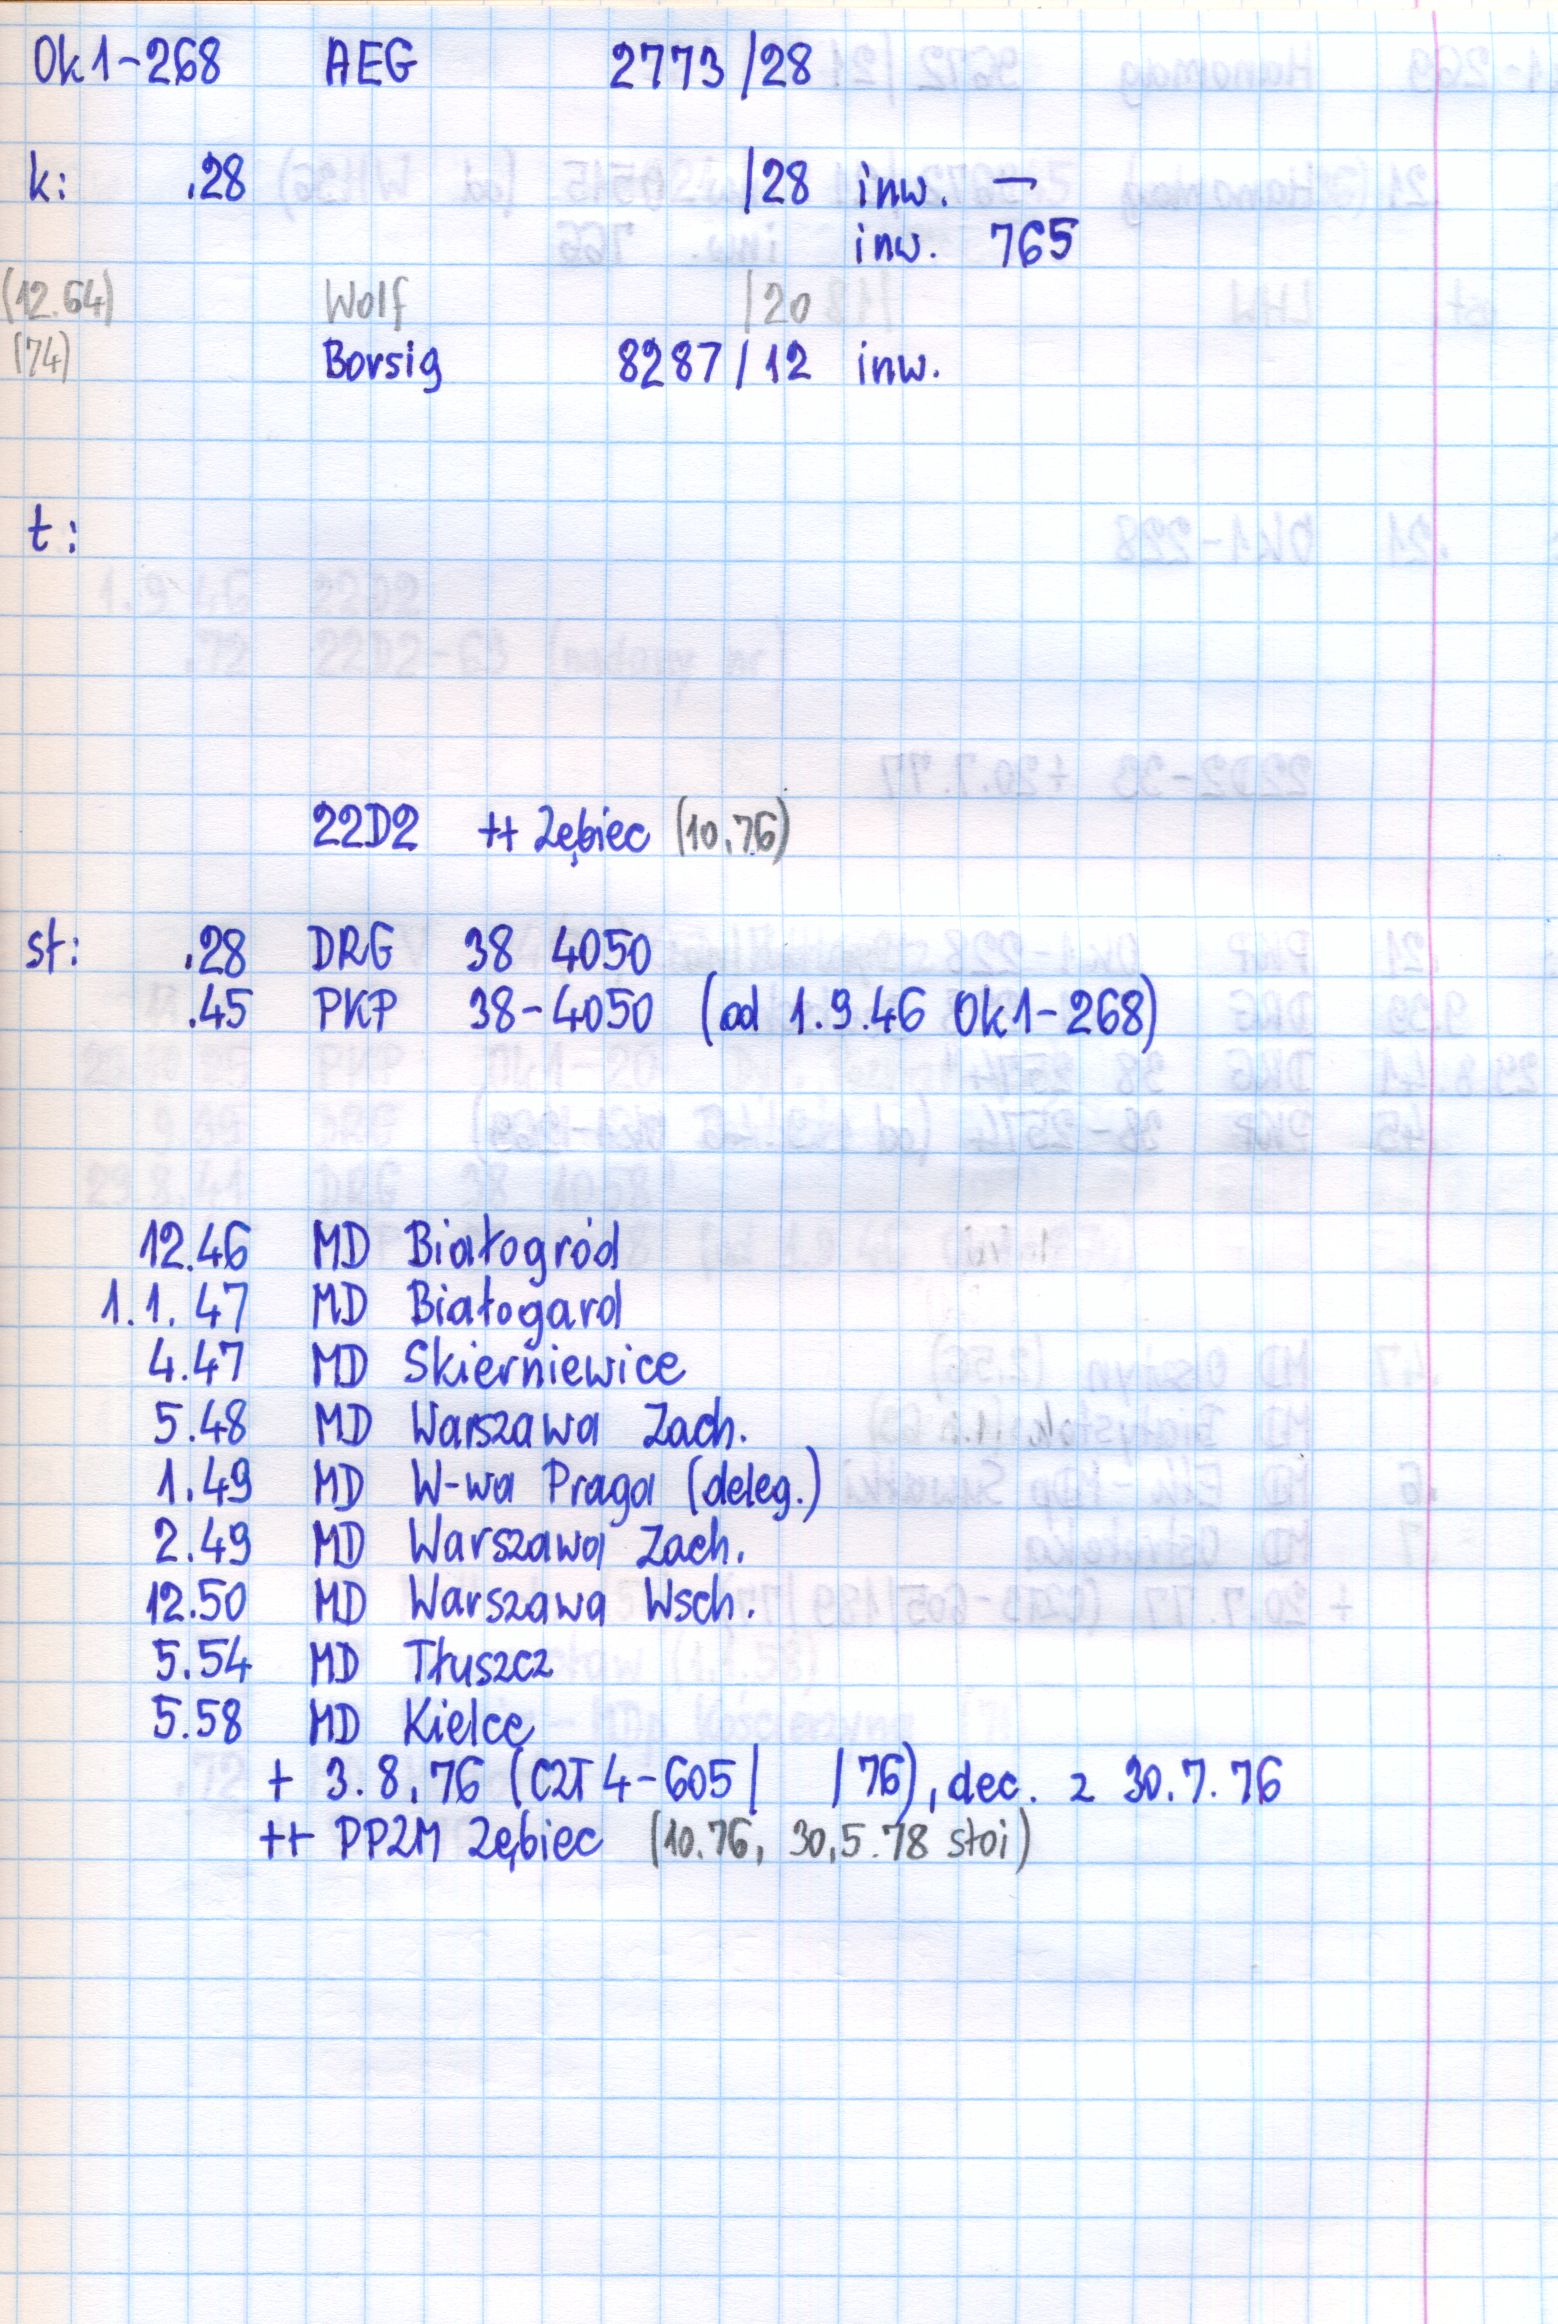 Ok1-268 AEG 2773/28
k: .28 /28 inw. —
inw. 765
(12.64) Wolf /20
(74) Borsig 8287/12 inw.
t:
22D2 ++ Zębiec (10.76)
st: .28 DRG 38 4050
.45 PKP 38-4050 (od 1.9.46 Ok1-268)
12.46 MD Białogród
1.1.47 MD Białogard
4.47 MD Skierniewice
5.48 MD Warszawa Zach.
1.49 MD W-wa Praga (deleg.)
2.49 MD Warszawa Zach.
12.50 MD Warszawa Wsch.
5.54 MD Tłuszcz
5.58 MD Kielce
+ 3.8.76 (CZT4-605/ /76), dec. z 30.7.76
++ PPZM Zębiec (10.76, 30.5.78 stoi)